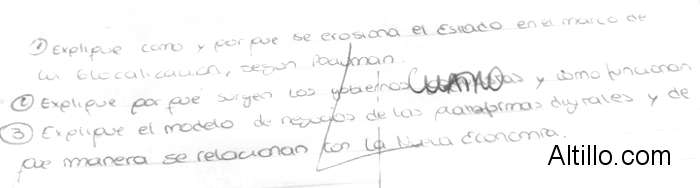 ① Explique como y por que se erosiona el Estado en el marco de
la Glocalización, según Bauman.
② Explique por qué surgen los gobiernos y cómo funcionan
③ Explique el modelo de negocios de las plataformas digitales y de
que manera se relacionan con la Nueva Economía.
Altillo.com